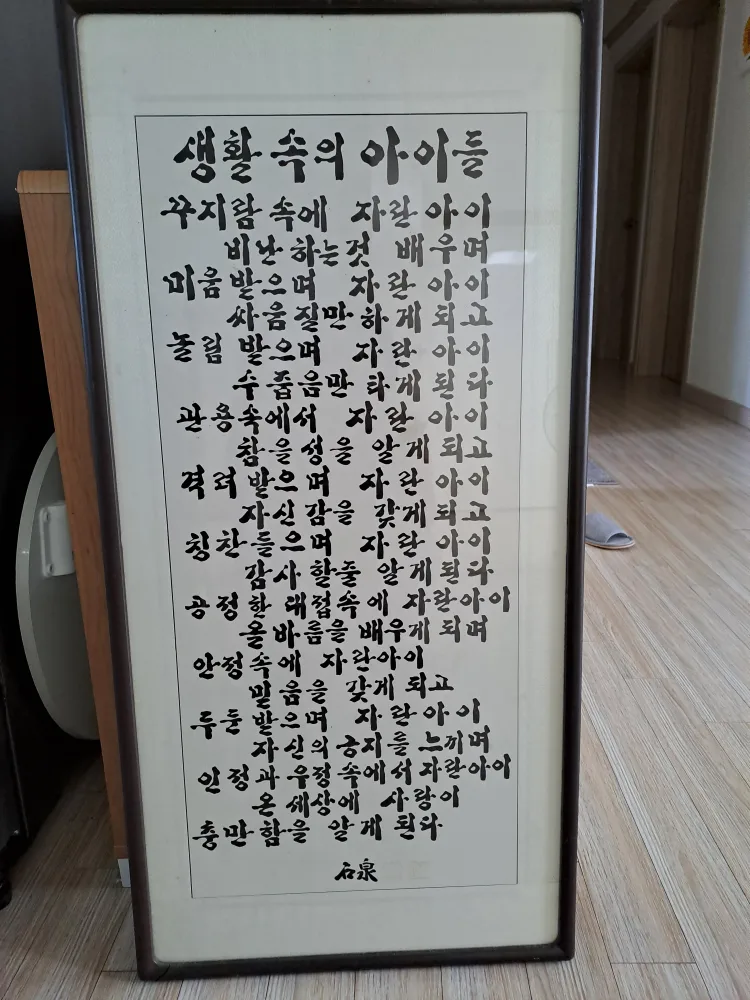 생활 속의 아이들
꾸지람 속에 자란 아이
비난 하는것 배우며
미움 받으며 자란 아이
싸움질만 하게 되고
놀림 받으며 자란 아이
수줍음만 타게 된다
관용속에서 자란 아이
참을성을 알게 되고
격려 받으며 자란 아이
자신감을 갖게 되고
칭찬 들으며 자란 아이
감사 할줄 알게 된다
공정한 대접속에 자란아이
올바름을 배우게 되며
안정 속에 자란아이
믿음을 갖게 되고
두둔 받으며 자란아이
자신의 긍지를 느끼며
인정과 우정속에서 자란아이
온 세상에 사랑이
충만함을 알게 된다
石泉